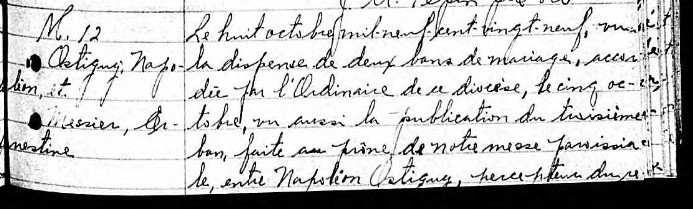 M. 12
Ostiguy, Napo-
léon, et
Messier, Er-
nestine
Le huit octobre mil-neuf-cent-vingt-neuf, vu
la dispense de deux bans de mariage, accor-
dée par l'Ordinaire de ce diocèse, le cinq oc-
tobre, vu aussi la publication du troisième
ban, faite au prône de notre messe paroissia-
le, entre Napoléon Ostiguy, percepteur du re-